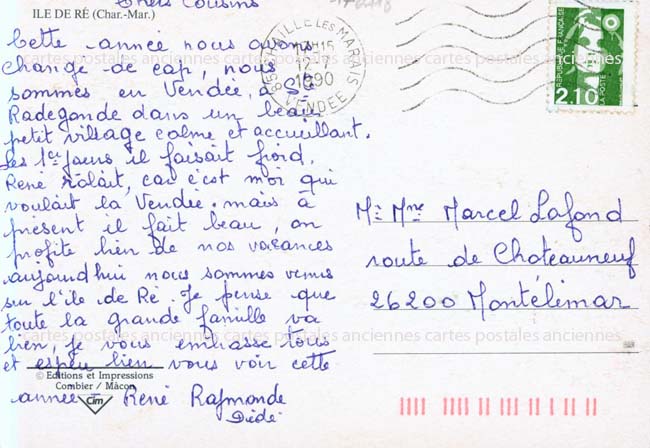 Chers Cousins
ILE DE RÉ (Char.-Mar.)
Cette année nous avons
change de cap, nous
sommes en Vendée, à Ste
Radegonde dans un beau
petit village calme et accueillant.
les 1er jours il faisait froid,
René râlait, car c'est moi qui
voulait la Vendée. mais à
présent il fait beau, on
profite bien de nos vacances
aujourdhui nous sommes venus
sur l'île de Ré. Je pense que
toute la grande famille va
bien, je vous embrasse tous
et espere bien vous voir cette
année - René Raymonde
Dédé
© Editions et Impressions
Combier / Mâcon
Cim
85 CHAILLE LES MARAIS
1990
VENDEE
REPUBLIQUE FRANÇAISE
LA POSTE
2,10
Mr Mme Marcel Lafond
route de Chateauneuf
26200 Montélimar
cartes postales anciennes cartes postales anciennes cartes postales anciennes
cartes postales anciennes cartes postales anciennes cartes postales anciennes